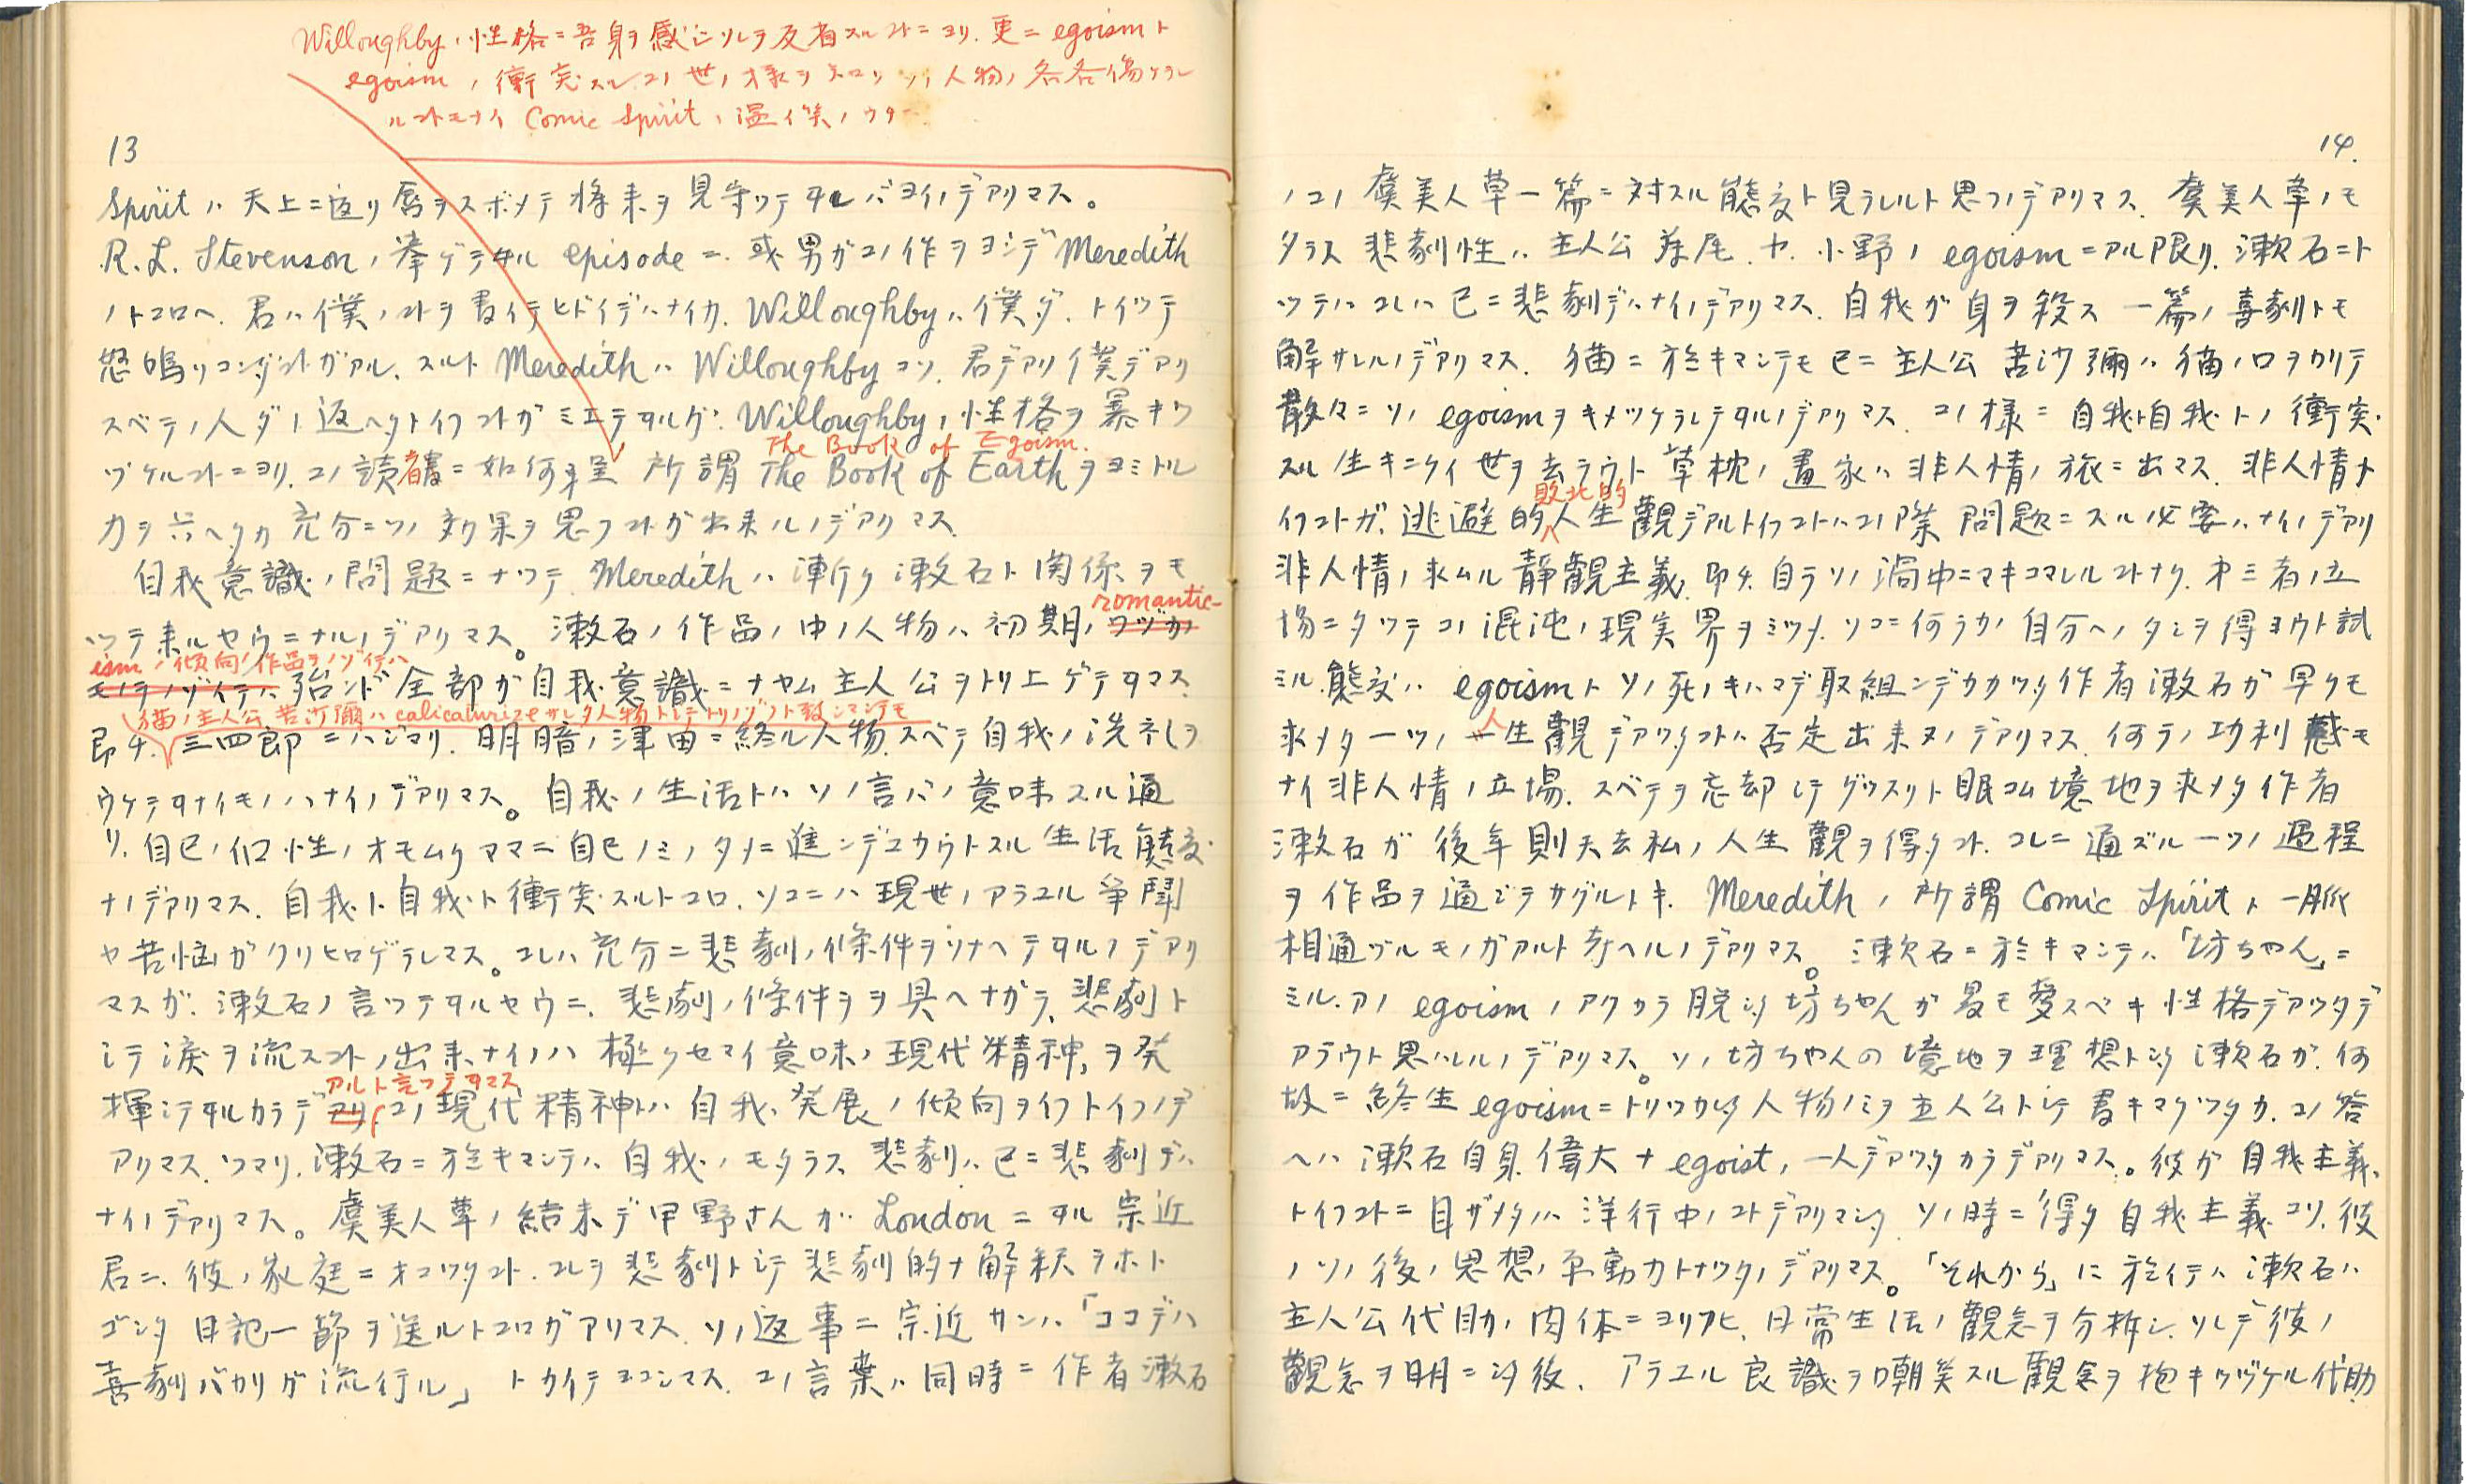 Willoughby ノ性格ニ吾身ヲ感ジソレヲ反省スルコトニヨリ、更ニ egoism ト
egoism ノ衝突スルコノ世ノ様ヲ 人物ノ各各傷ケラレ
ルコトニナイ Comic Spirit ノ温イ笑ノウタ
13
Spirit ハ天上ニ返リ唇ヲスボメテ将来ヲ見守ツテヰレバヨイノデアリマス。
R. L. Stevenson ノ挙ゲテヰル episode ニ、或男ガコノ作ヲヨンデ Meredith
ノトコロヘ、君ハ僕ノコトヲ書イテヒドイデハナイカ、Willoughby ハ僕ダ、トイツテ
怒鳴リコンダコトガアル、スルト Meredith ハ Willoughby コソ、君デアリ僕デアリ
スベテノ人ダト返ヘタトイフコトガミエテヰルガ、Willoughby ノ性格ヲ暴キツ
The Book of Egoism.
ヅケルコトニヨリ、コノ読者ニ如何程 所謂 The Book of Earth ヲヨミトル
力ヲ与ヘタカ充分ニソノ効果ヲ思フコトガ出来ルノデアリマス
自我意識ノ問題ニナツテ、Meredith ハ漸ク漱石ト関係ヲモ
romantic-
ツテ来ルヤウニナルノデアリマス。漱石ノ作品ノ中ノ人物ハ初期ノワヅカノ
ism ノ傾向ノ作品ヲノゾイテハ
モノヲノゾイテハ殆ンド全部ガ自我意識ニナヤム主人公ヲトリ上ゲテヰマス、
猫ノ主人公苦沙彌ハ calicaturize サレタ人物トシテトリノゾクト致シマシテモ
即チ、三四郎ニハジマリ、明暗ノ津田ニ終ル人物、スベテ自我ノ洗礼ヲ
ウケテヰナイモノハナイノデアリマス。自我ノ生活トハソノ言バノ意味スル通
リ、自己ノ個性ノオモムクママニ自己ノミノタメニ進ンデユカウトスル生活態度
ナノデアリマス、自我ト自我ト衝突スルトコロ、ソコニハ現世ノアラユル争闘
ヤ苦悩ガクリヒロゲラレマス。コレハ充分ニ悲劇ノ條件ヲソナヘテヰルノデアリ
マスガ、漱石ノ言ツテヰルヤウニ、悲劇ノ條件ヲヲ具ヘナガラ、悲劇ト
シテ涙ヲ流スコトノ出来ナイノハ極クセマイ意味ノ現代精神ヲ発
アルト言ツテヰマス
揮シテヰルカラデアリ、コノ現代精神トハ自我ノ発展ノ傾向ヲイフトイフノデ
アリマス、ツマリ、漱石ニ於キマシテハ、自我ノモタラス悲劇ハ已ニ悲劇デハ
ナイノデアリマス。虞美人草ノ結末デ甲野さんが London ニヰル宗近
君ニ、彼ノ家庭ニオコツタコト、コレヲ悲劇トシテ悲劇的ナ解釈ヲホド
ゴシタ日記一節ヲ送ルトコロガアリマス、ソノ返事ニ宗近サンハ、「ココデハ
喜劇バカリガ流行ル」トカイテヨコシマス、コノ言葉ハ同時ニ作者漱石
14.
ノコノ虞美人草一篇ニ対スル態度ト見ラレルト思フノデアリマス、虞美人草ノモ
タラス悲劇性ハ主人公藤尾、ヤ、小野ノ egoism ニアル限リ、漱石ニト
ツテハコレハ已ニ悲劇デハナイノデアリマス、自我ガ身ヲ殺ス一篇ノ喜劇トモ
解サレルノデアリマス、猫ニ於キマシテモ已ニ主人公苦沙彌ハ猫ノ口ヲカリテ
散々ニソノ egoism ヲキメツケラレテヰルノデアリマス、コノ様ニ自我ト自我トノ衝突
スル生キニクイ世ヲ去ラウト草枕ノ畫家ハ非人情ノ旅ニ出マス、非人情ナ
敗北的
イフコトガ、逃避的人生観デアルトイフコトハコノ際問題ニスル必要ハナイノデアリ
非人情ノ求ムル静観主義、即チ自ラソノ渦中ニマキコマレルコトナク、第三者ノ立
場ニタツテコノ混沌ノ現実界ヲミツメ、ソコニ何ラカノ自分ヘノタシヲ得ヨウト試
ミル態度ハ egoism トソノ死ノキハマデ取組ンデカカツタ作者漱石ガ早クモ
求メタ一ツノ人生観デアツタコトハ否定出来ヌノデアリマス、何ラノ功利感モ
ナイ非人情ノ立場、スベテヲ忘却シテグツスリト眠コム境地ヲ求メタ作者
漱石ガ後年則天去私ノ人生観ヲ得タコト、コレニ通ズル一ツノ過程
ヲ作品ヲ通ジテサグルトキ、Meredith ノ所謂 Comic Spirit ト一脈
相通ヅルモノガアルト考ヘルノデアリマス。漱石ニ於キマシテハ、「坊ちやん」ニ
ミル、アノ egoism ノアクカラ脱シタ坊ちやんが最モ愛スベキ性格デアツタデ
アラウト思ハレルノデアリマス。ソノ坊ちやんの境地ヲ理想トシタ漱石ガ、何
故ニ終生 egoism ニトリツカレタ人物ノミヲ主人公トシテ書キマクツタカ、コノ答
ヘハ漱石自身偉大ナ egoist ノ一人デアツタカラデアリマス。彼ガ自我主義
トイフコトニ目ザメタノハ洋行中ノコトデアリマシタ、ソノ時ニ得タ自我主義コソ、彼
ノソノ後ノ思想ノ原動力トナツタノデアリマス。「それから」に於イテハ漱石ハ
主人公代助ノ肉体ニヨリアヒ、日常生活ノ観念ヲ分析シ、ソレデ彼ノ
観念ヲ明ニシタ後、アラユル良識ヲ嘲笑スル観念ヲ抱キツヅケル代助